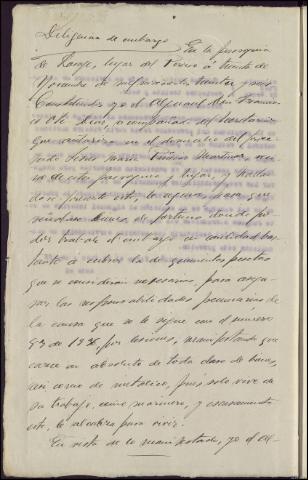 Diligencia de embargo = En la parroquia
de Langa, lugar del Perrio á treinta de
Noviembre de mil novecientos treinta y seis
Constituido yo el Alguacil Don Francisco
Oté Dios, acompañado del Secretario
que autoriza en el domicilio del procesado
José María Piñeiro Martínez, vecino
de esta parroquia y lugar, y hallándose
presente este, le requerí para que
señalase bienes de fortuna donde poder
trabar el embargo en cantidad bastante
á cubrir la de quinientas pesetas
que se consideran necesarias para asegurar
las responsabilidades pecuniarias de
la causa que se le sigue con el número
93 de 1936, por lesiones, manifestando que
carece en absoluto de toda clase de bienes,
así como de metálico, pues solo vive de
su trabajo, como marinero, y escasamente
este, le alcanza para vivir.
En vista de lo manifestado, yo el Al-